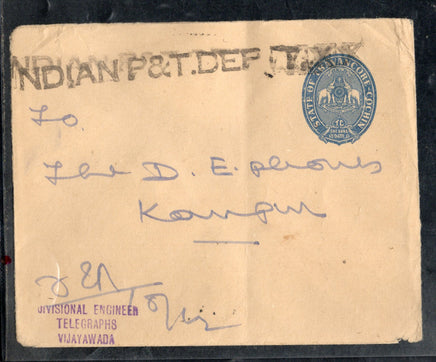 NDIAN P&T. DEP
STATE OF TRAVANCORE-COCHIN
To
The D. E. phones
Kanpur
DIVISIONAL ENGINEER
TELEGRAPHS
VIJAYAWADA